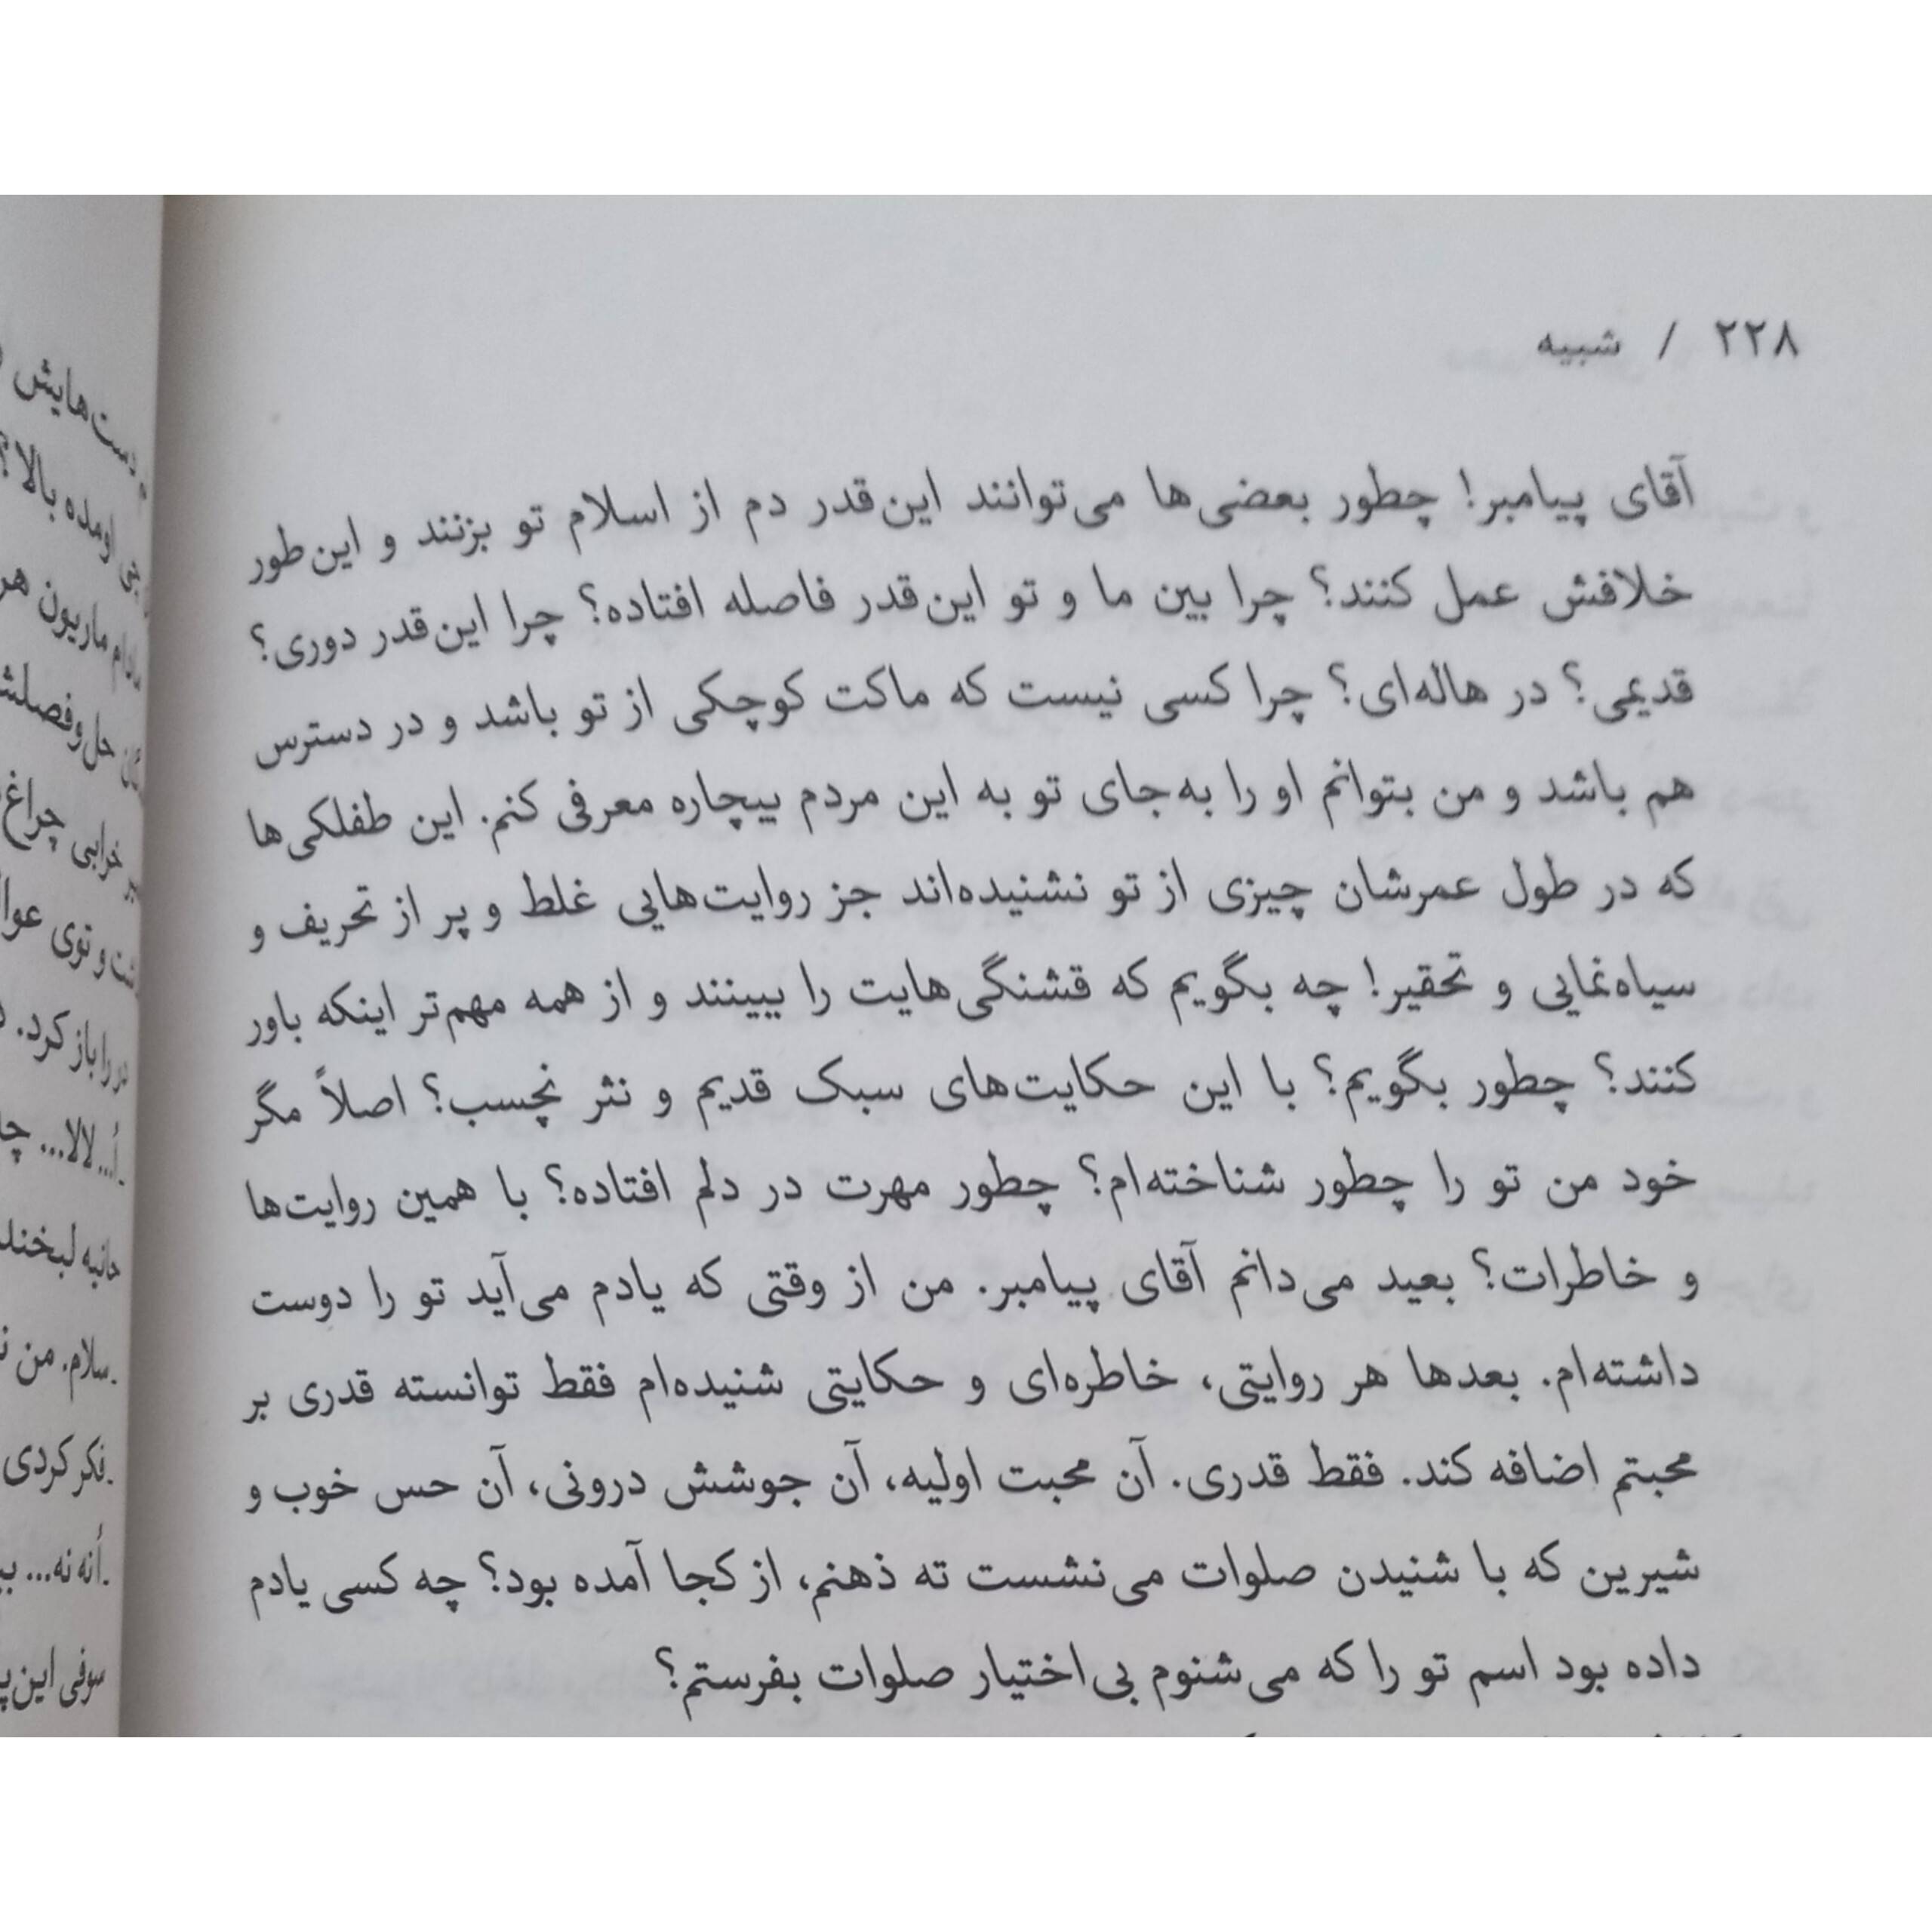 ۲۲۸ / شبیه
آقای پیامبر! چطور بعضی‌ها می‌توانند این‌قدر دم از اسلام تو بزنند و این‌طور
خلافش عمل کنند؟ چرا بین ما و تو این‌قدر فاصله افتاده؟ چرا این‌قدر دوری؟
قدیمی؟ در هاله‌ای؟ چرا کسی نیست که ماکت کوچکی از تو باشد و در دسترس
هم باشد و من بتوانم او را به‌جای تو به این مردم بیچاره معرفی کنم. این طفلکی‌ها
که در طول عمرشان چیزی از تو نشنیده‌اند جز روایت‌هایی غلط و پر از تحریف و
سیاه‌نمایی و تحقیر! چه بگویم که قشنگی‌هایت را ببینند و از همه مهم‌تر اینکه باور
کنند؟ چطور بگویم؟ با این حکایت‌های سبک قدیم و نثر نچسب؟ اصلاً مگر
خود من تو را چطور شناخته‌ام؟ چطور مهرت در دلم افتاده؟ با همین روایت‌ها
و خاطرات؟ بعید می‌دانم آقای پیامبر. من از وقتی که یادم می‌آید تو را دوست
داشته‌ام. بعدها هر روایتی، خاطره‌ای و حکایتی شنیده‌ام فقط توانسته قدری بر
محبتم اضافه کند. فقط قدری. آن محبت اولیه، آن جوشش درونی، آن حس خوب و
شیرین که با شنیدن صلوات می‌نشست ته ذهنم، از کجا آمده بود؟ چه کسی یادم
داده بود اسم تو را که می‌شنوم بی‌اختیار صلوات بفرستم؟
دست‌هایش
اومده بالا؟
مادام ماریون هر
حل‌وفصلش
خرابی چراغ
و توی
در را باز کرد.
أ... لالا...
حانیه لبخند
-سلام. من
-فکر کردی
-أنه نه...
سوفی این